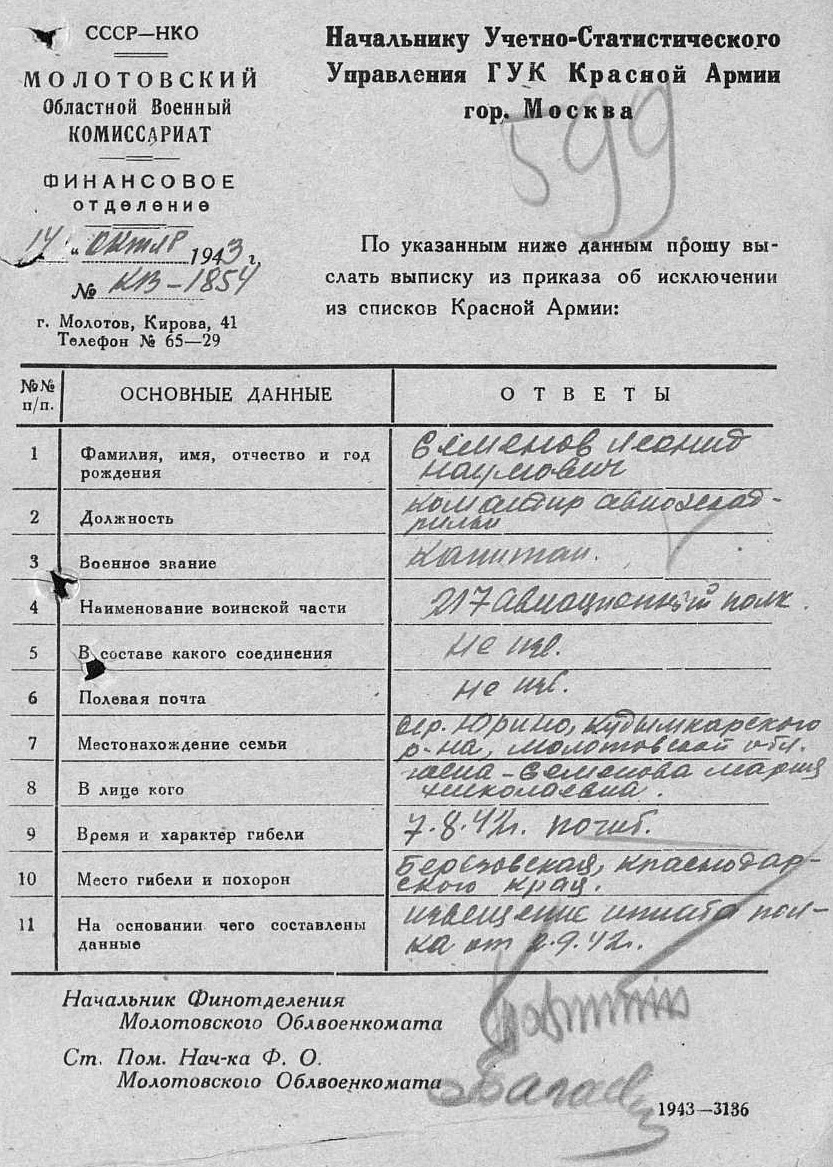 СССР—НКО
МОЛОТОВСКИЙ
Областной Военный
КОМИССАРИАТ
ФИНАНСОВОЕ
отделение
14 " октяр 1943 г.
№ КВ-1854
г. Молотов, Кирова, 41
Телефон № 65—29
Начальнику Учетно-Статистического
Управления ГУК Красной Армии
гор. Москва
599
По указанным ниже данным прошу вы-
слать выписку из приказа об исключении
из списков Красной Армии:
№№ п/п. ОСНОВНЫЕ ДАННЫЕ ОТВЕТЫ
1 Фамилия, имя, отчество и год рождения
Семенов Леонид
Наумович
2 Должность
командир авиаэскад-
рильи
3 Военное звание Капитан.
4 Наименование воинской части 217 Авиационный полк.
5 В составе какого соединения не изв.
6 Полевая почта не изв.
7 Местонахождение семьи
дер. Юрино, Кудымкарского
р-на, Молотовской обл.
8 В лице кого
жена - Семенова Мария
Николаевна.
9 Время и характер гибели 7.8.42г. погиб.
10 Место гибели и похорон
Березовская, Краснодар-
ского края.
11 На основании чего составлены данные
извещение штаба пол-
ка от 2.9.42г.
Начальник Финотделения
Молотовского Облвоенкомата
Ст. Пом. Нач-ка Ф. О.
Молотовского Облвоенкомата
1943—3136